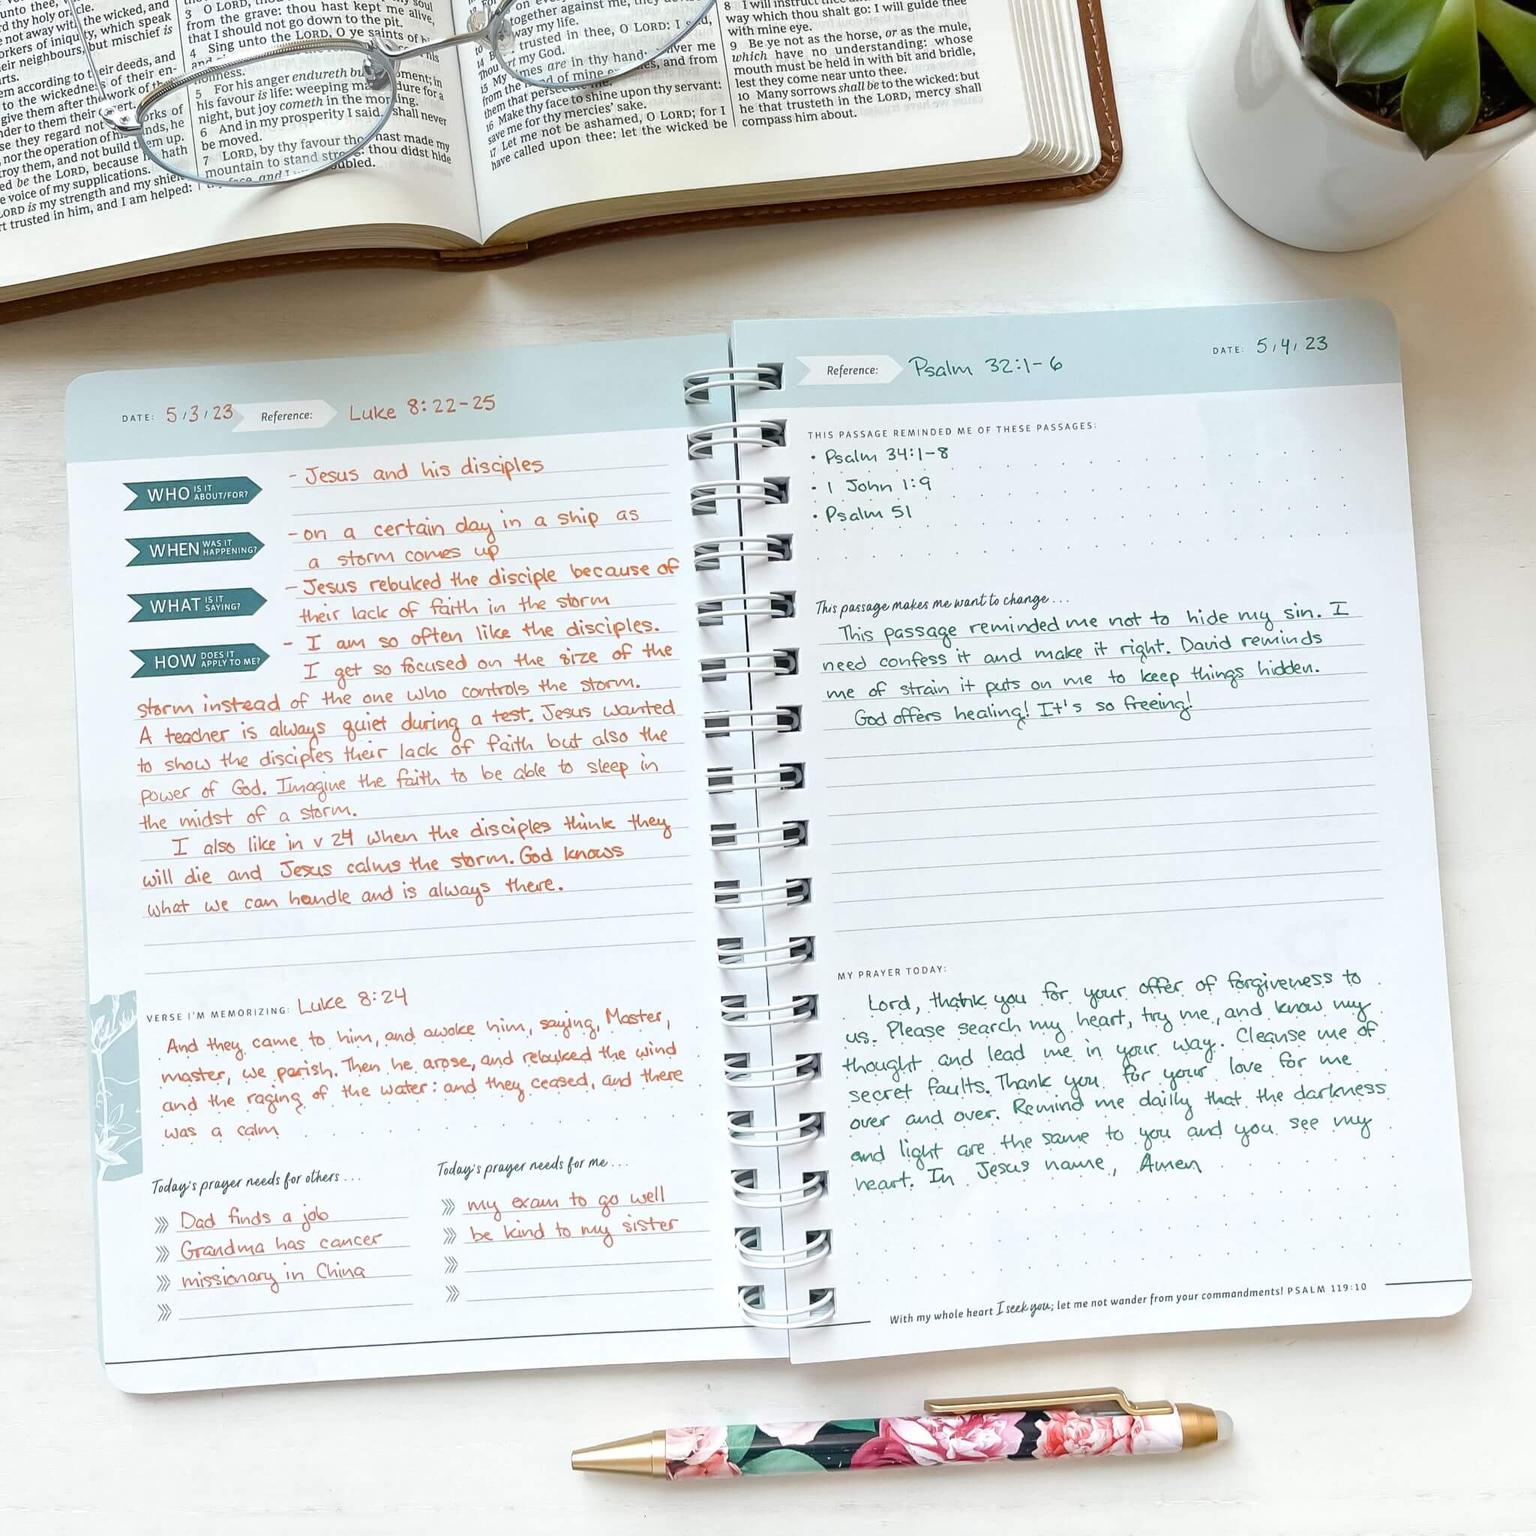 3 O LORD,
from the grave: thou hast kept me alive,
that I should not go down to the pit.
4 Sing unto the LORD, O ye saints of
holiness.
5 For his anger endureth
his favour is life: weeping
night, but joy cometh in the morning.
6 And in my prosperity I said, shall never
be moved.
7 LORD, by thy favour thou hast made my
mountain to stand strong: thou didst hide
according to their deeds, and
to the wickedness of their en-
give them after the work of their
nor the operation of his hands, he
and not build them up.
be the LORD, because hath
voice of my supplications.
LORD is my strength and my shield
trusted in him, and I am helped:
together against me, they
away my life.
trusted in thee, O LORD: I said,
my God.
15 My times are in thy hand:
from the hand of mine and from
them that persecute me.
16 Make thy face to shine upon thy servant:
save me for thy mercies' sake.
17 Let me not be ashamed, O LORD; for I
have called upon thee: let the wicked be
8 I will instruct
way which thou shalt go: I will guide thee
with mine eye.
9 Be ye not as the horse, or as the mule,
which have no understanding: whose
mouth must be held in with bit and bridle,
lest they come near unto thee.
10 Many sorrows shall be to the wicked: but
he that trusteth in the LORD, mercy shall
compass him about.
DATE: 5/3/23 Reference: Luke 8:22-25
WHO IS IT ABOUT/FOR?
- Jesus and his disciples
WHEN WAS IT HAPPENING?
- on a certain day in a ship as
a storm comes up
WHAT IS IT SAYING?
- Jesus rebuked the disciple because of
their lack of faith in the storm
HOW DOES IT APPLY TO ME?
- I am so often like the disciples.
I get so focused on the size of the
storm instead of the one who controls the storm.
A teacher is always quiet during a test. Jesus wanted
to show the disciples their lack of faith but also the
power of God. Imagine the faith to be able to sleep in
the midst of a storm.
I also like in v 24 when the disciples think they
will die and Jesus calms the storm. God knows
what we can handle and is always there.
VERSE I'M MEMORIZING: Luke 8:24
And they came to him, and awoke him, saying, Master,
master, we perish. Then he arose, and rebuked the wind
and the raging of the water: and they ceased, and there
was a calm
Today's prayer needs for others...
Dad finds a job
Grandma has cancer
missionary in China
Today's prayer needs for me...
my exam to go well
be kind to my sister
Reference: Psalm 32:1-6
DATE: 5/4/23
THIS PASSAGE REMINDED ME OF THESE PASSAGES:
• Psalm 34:1-8
• 1 John 1:9
• Psalm 51
This passage makes me want to change...
This passage reminded me not to hide my sin. I
need confess it and make it right. David reminds
me of strain it puts on me to keep things hidden.
God offers healing! It's so freeing!
MY PRAYER TODAY:
Lord, thank you for your offer of forgiveness to
us. Please search my heart, try me, and know my
thought and lead me in your way. Cleanse me of
secret faults. Thank you for your love for me
over and over. Remind me dailly that the darkness
and light are the same to you and you see my
heart. In Jesus name, Amen
With my whole heart I seek you; let me not wander from your commandments! PSALM 119:10